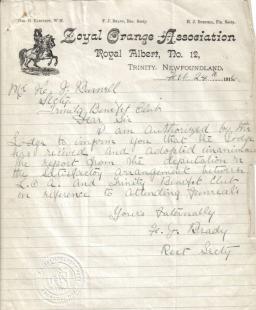 F. J. Brady, Rec. Secty
Loyal Orange Association
Royal Albert, No. 12,
TRINITY, NEWFOUNDLAND,
Feb 24th
Secty
Trinity Benefit Club
Dear Sir
I am Authorized by this
Lodge to inform you that the Lodge
has recieved and adopted
the report from the deputation re
the Satisfactory Arrangement between
L.O.A. and Trinity Benefit Club
in reference to Attending Funerals
Yours Fraternally
F. J. Brady
Rect Secty